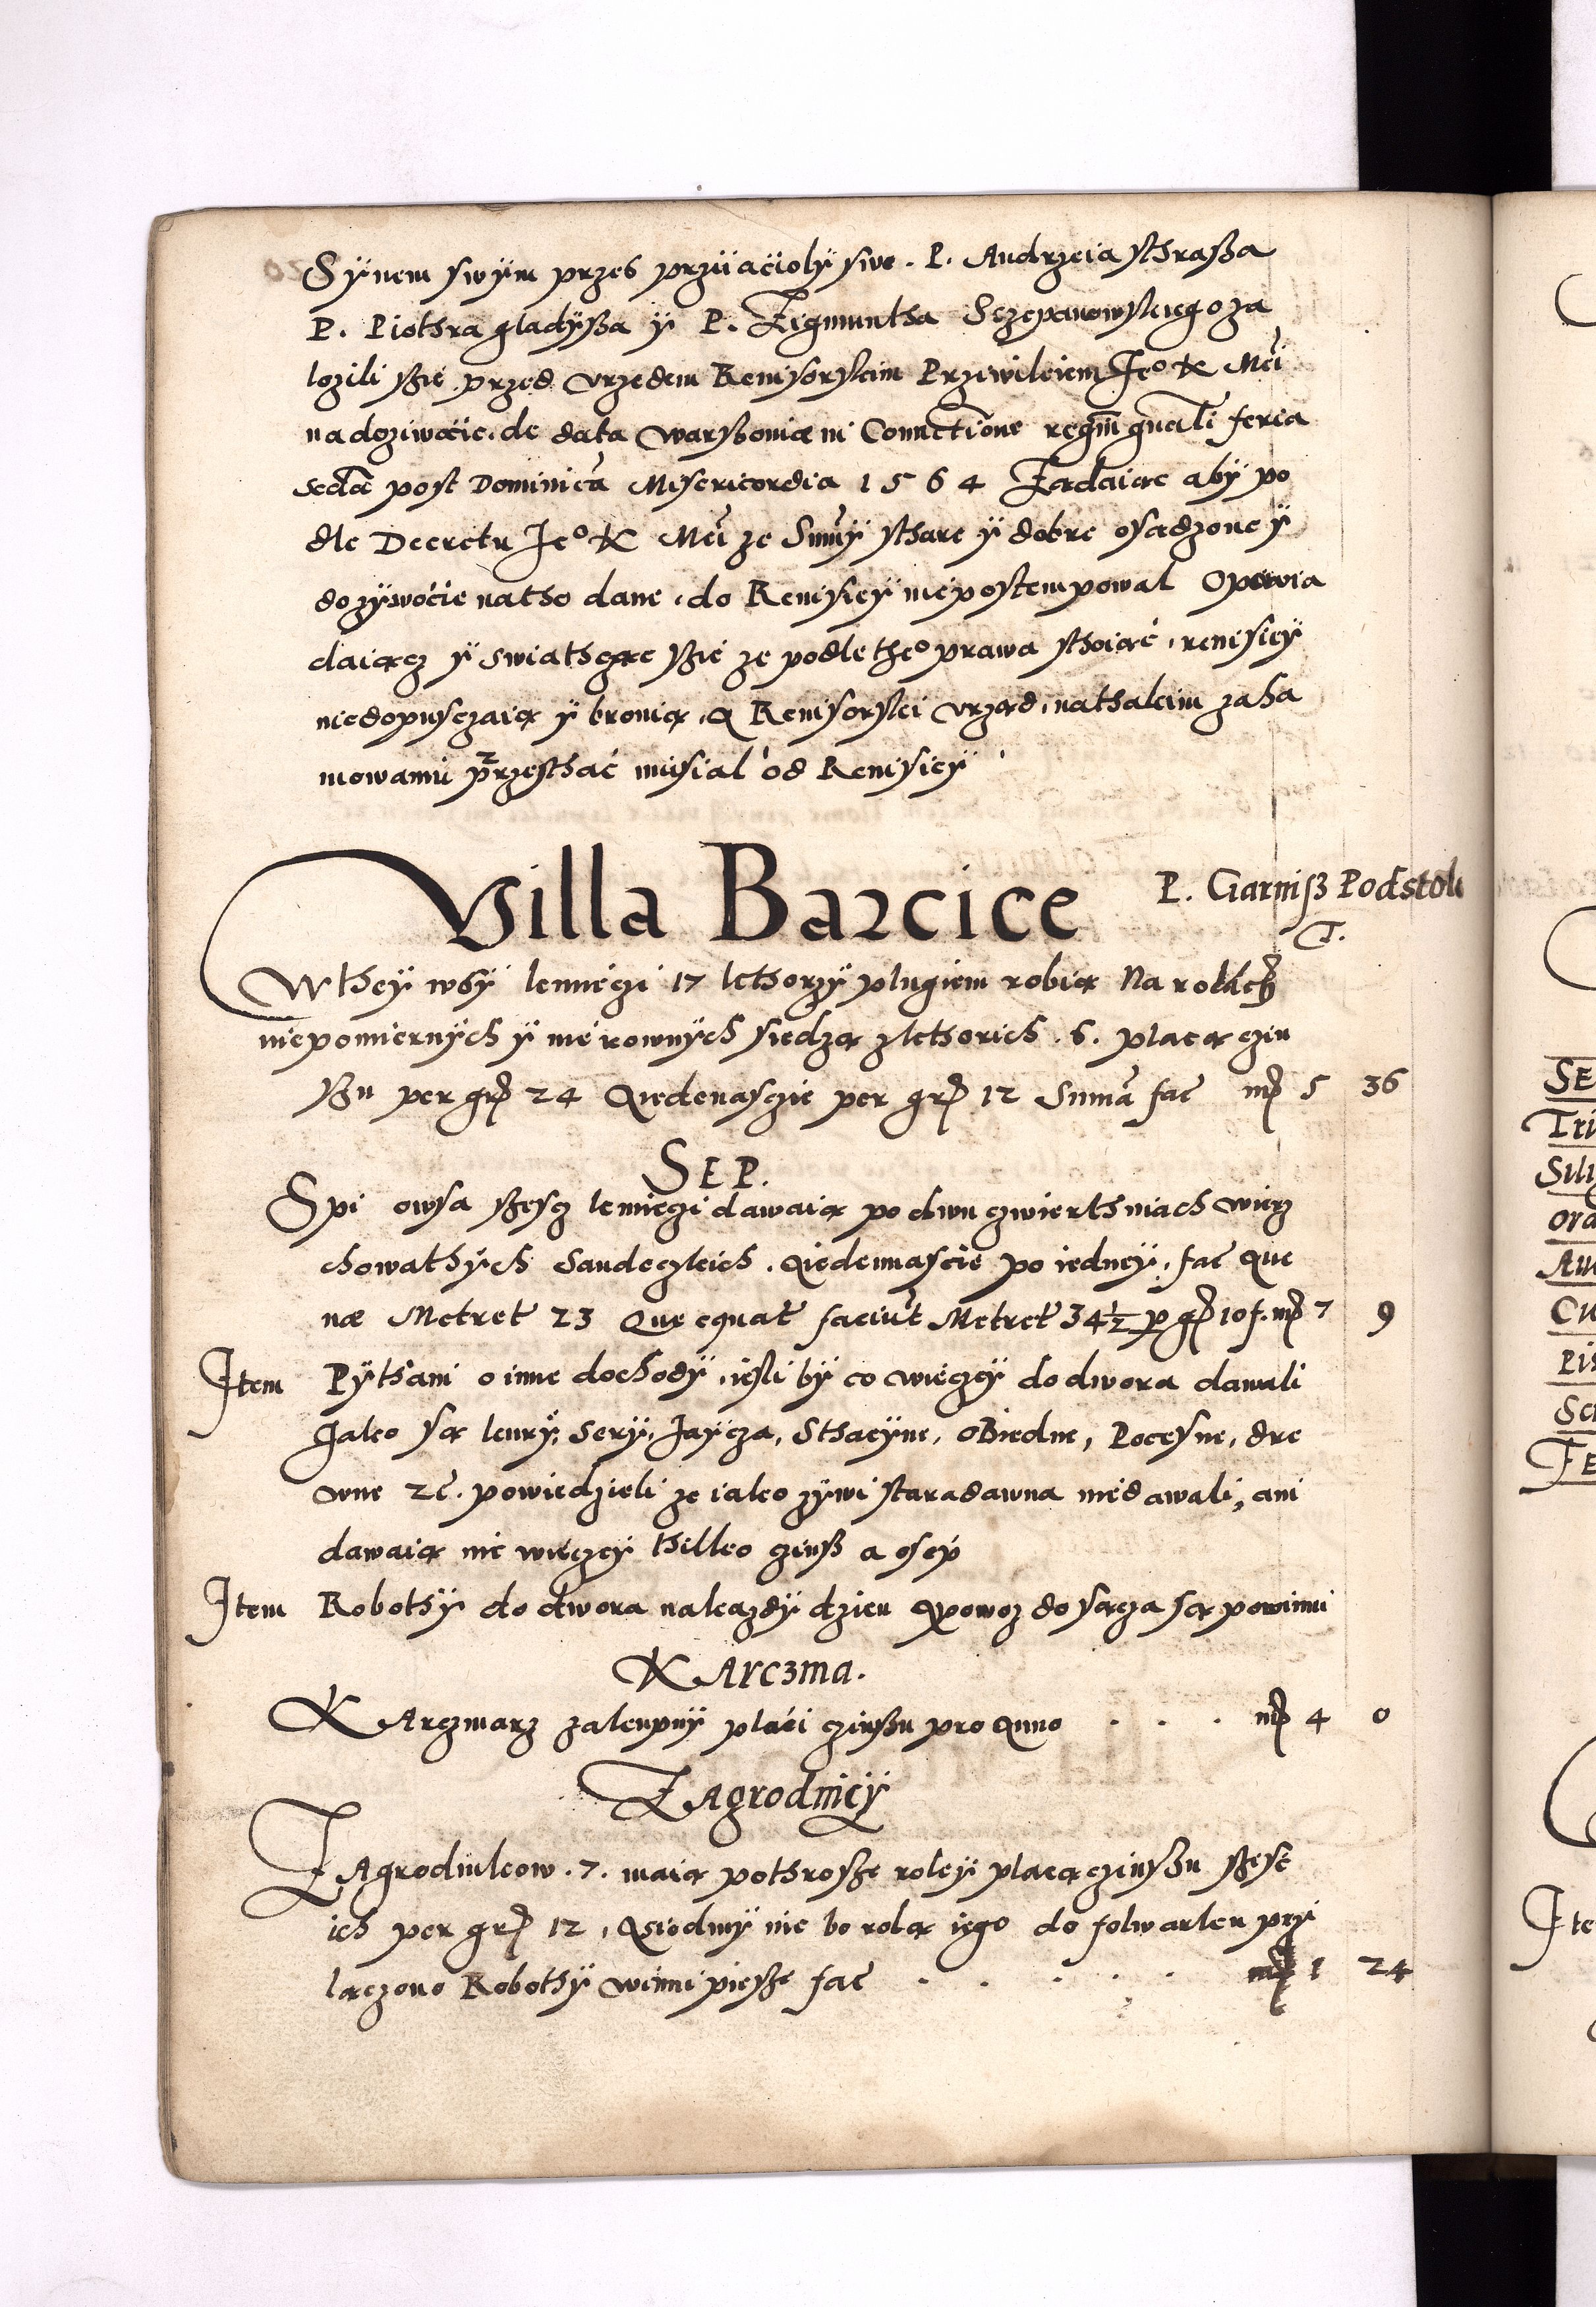 Synem swym przes przyiacioly swe. P. Andrzeia sthraßa
P. Piothra gladyßa y P. Zigmuntha Sczepanowskiegoza
lozili ßie przed vrzedem Reuisorskim Przewileiem Jeo K Mci
nadoziwocie. de data Warssouiæ in Conuctione regni gnali feria
Secda post Dominica Misericordia 1564 Ządaiąc aby po
dle Decretu Jeo K Mci ze Sumy sthare y dobre osadzone y
dozywocie natho dane, do Reuisiey niepostempowal Opowia
daiącz y swiathcząc ßie ze podle theo prawa sthoiąc, reuisiey
niedopusczaią y bronią, A Reuisorski vrząd, nathakim zaha
mowaniu przesthać musial od Reuisiey
Villa Barcice
P. Garniß Podstoli
C.
W they wsy kmieczi 17 kthorzy plugiem robią Na rolach
niepomiernych y nierownych siedzą zkthorich. 6. placą czin
ßu per gr 24 Aiedenasczie per gr 12 Suma fac mr 5 36
SEP.
Spi owsa ßesz kmieczi dawaią po dwu czwierthniach wierz
chowathych Sandeczkich. Aiedennascie po iedney, fac aue
næ Metret 23 Que equat faciut Metret 34½ per gr 10 f. mr 7 9
Item Pythani o inne dochody, iesli by co wieczy do dwora dawali
Jako są kury, Sery, Jaycza, Sthacyne, obiedne, Poceysne, dre
wne etc. powiedzieli ze iako zywi staradawna niedawali, ani
dawaią nic wieczey thilko czinß a osep
Item Robothy do dwora nakazdy dzien Apowoz do sącza są powinni
KArczma.
KArczmarz zakupny placi czinßu pro Anno . . . mr 4 0
ZAgrodnicy
ZAgrodnikow. 7. maią pothrosze roley placączinszu szesc
ich per gr 12, Asiodmy nie bo rolą iego do folwarku przy
lączono Robothy winni piesze fac . . . . . mr 1 24